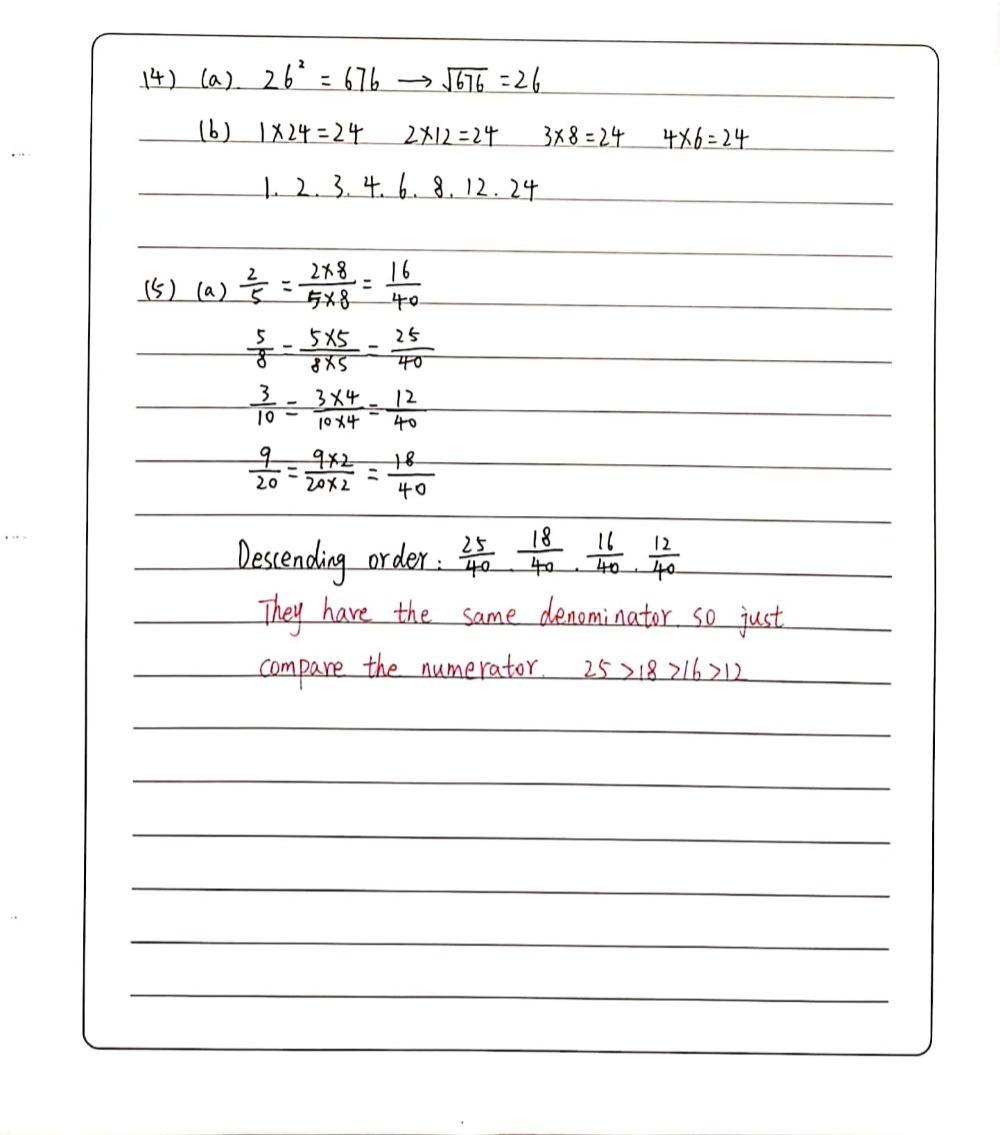 14) (a). 26² = 676 → √676 = 26
(b) 1×24=24 2×12=24 3×8=24 4×6=24
1. 2. 3. 4. 6. 8. 12. 24
15) (a) 2/5 = 2×8/5×8 = 16/40
5/8 = 5×5/8×5 = 25/40
3/10 = 3×4/10×4 = 12/40
9/20 = 9×2/20×2 = 18/40
Descending order: 25/40. 18/40. 16/40. 12/40
They have the same denominator. so just
compare the numerator. 25>18>16>12